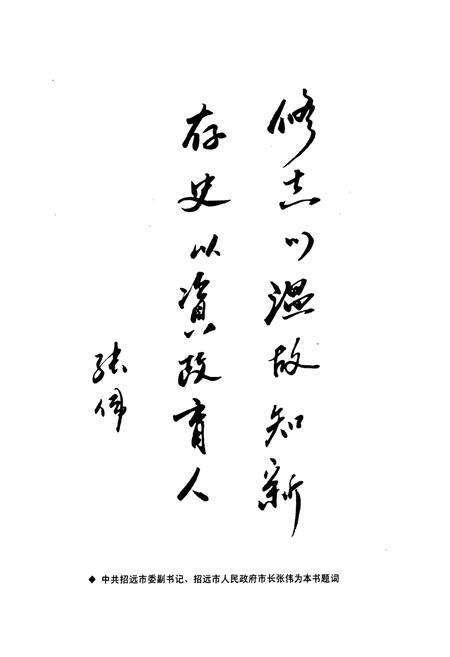 修志以温故知新
存史以資政育人
张伟
◆ 中共招远市委副书记、招远市人民政府市长张伟为本书题词